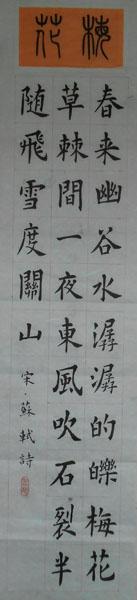 梅花
春来幽谷水潺潺的皪梅花
草棘間一夜東風吹石裂半
随飛雪度關山
宋·蘇軾詩